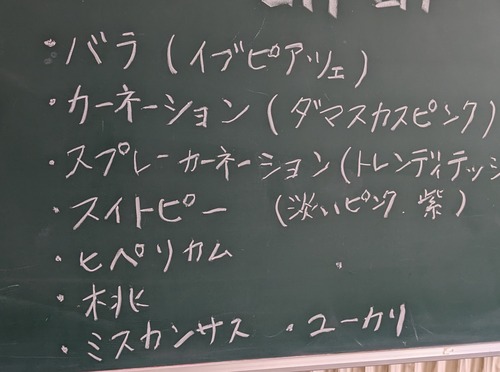 ・バラ（イブピアツェ）
・カーネーション（ダマスカスピンク）
・スプレーカーネーション（トレンディテッシ
・スイトピー （淡いピンク.紫）
・ヒペリカム
・桃
・ミスカンサス ・ユーカリ